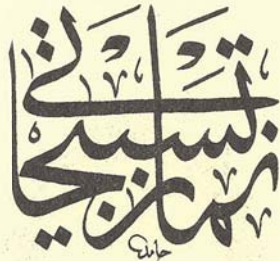 نماز تسبيحاتى
حامد